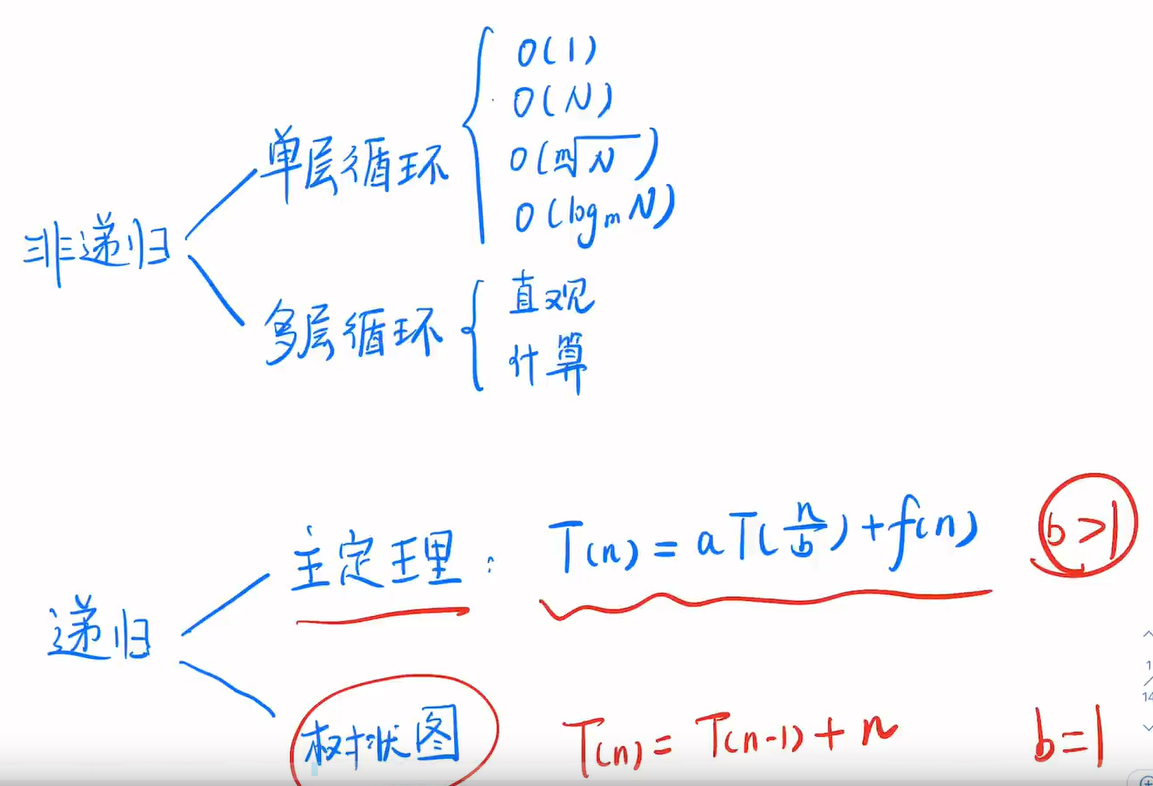 非递归
单层循环
O(1)
O(N)
O(ᵐ√N)
O(logₘN)
多层循环
直观
计算
递归
主定理：T(n) = aT(n/b) + f(n) b>1
树状图 T(n) = T(n-1) + n b=1
1
/
14